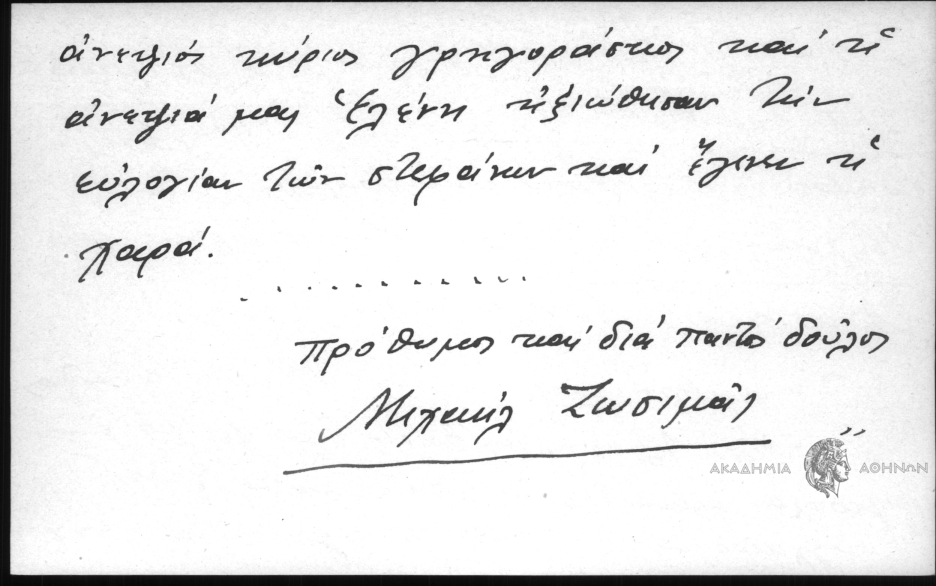 ἀνεψιός κύριος Γρηγοράσκος καί ἡ
ἀνεψιά μας Ἑλένη ἠξιώθησαν τήν
εὐλογίαν τῶν στεφάνων καί ἔγινεν ἡ
χαρά.
. . . . . . . . . . . .
πρόθυμος καί διά παντός δοῦλος
Μιχαήλ Ζωσιμᾶς
ΑΚΑΔΗΜΙΑ ΑΘΗΝΩΝ